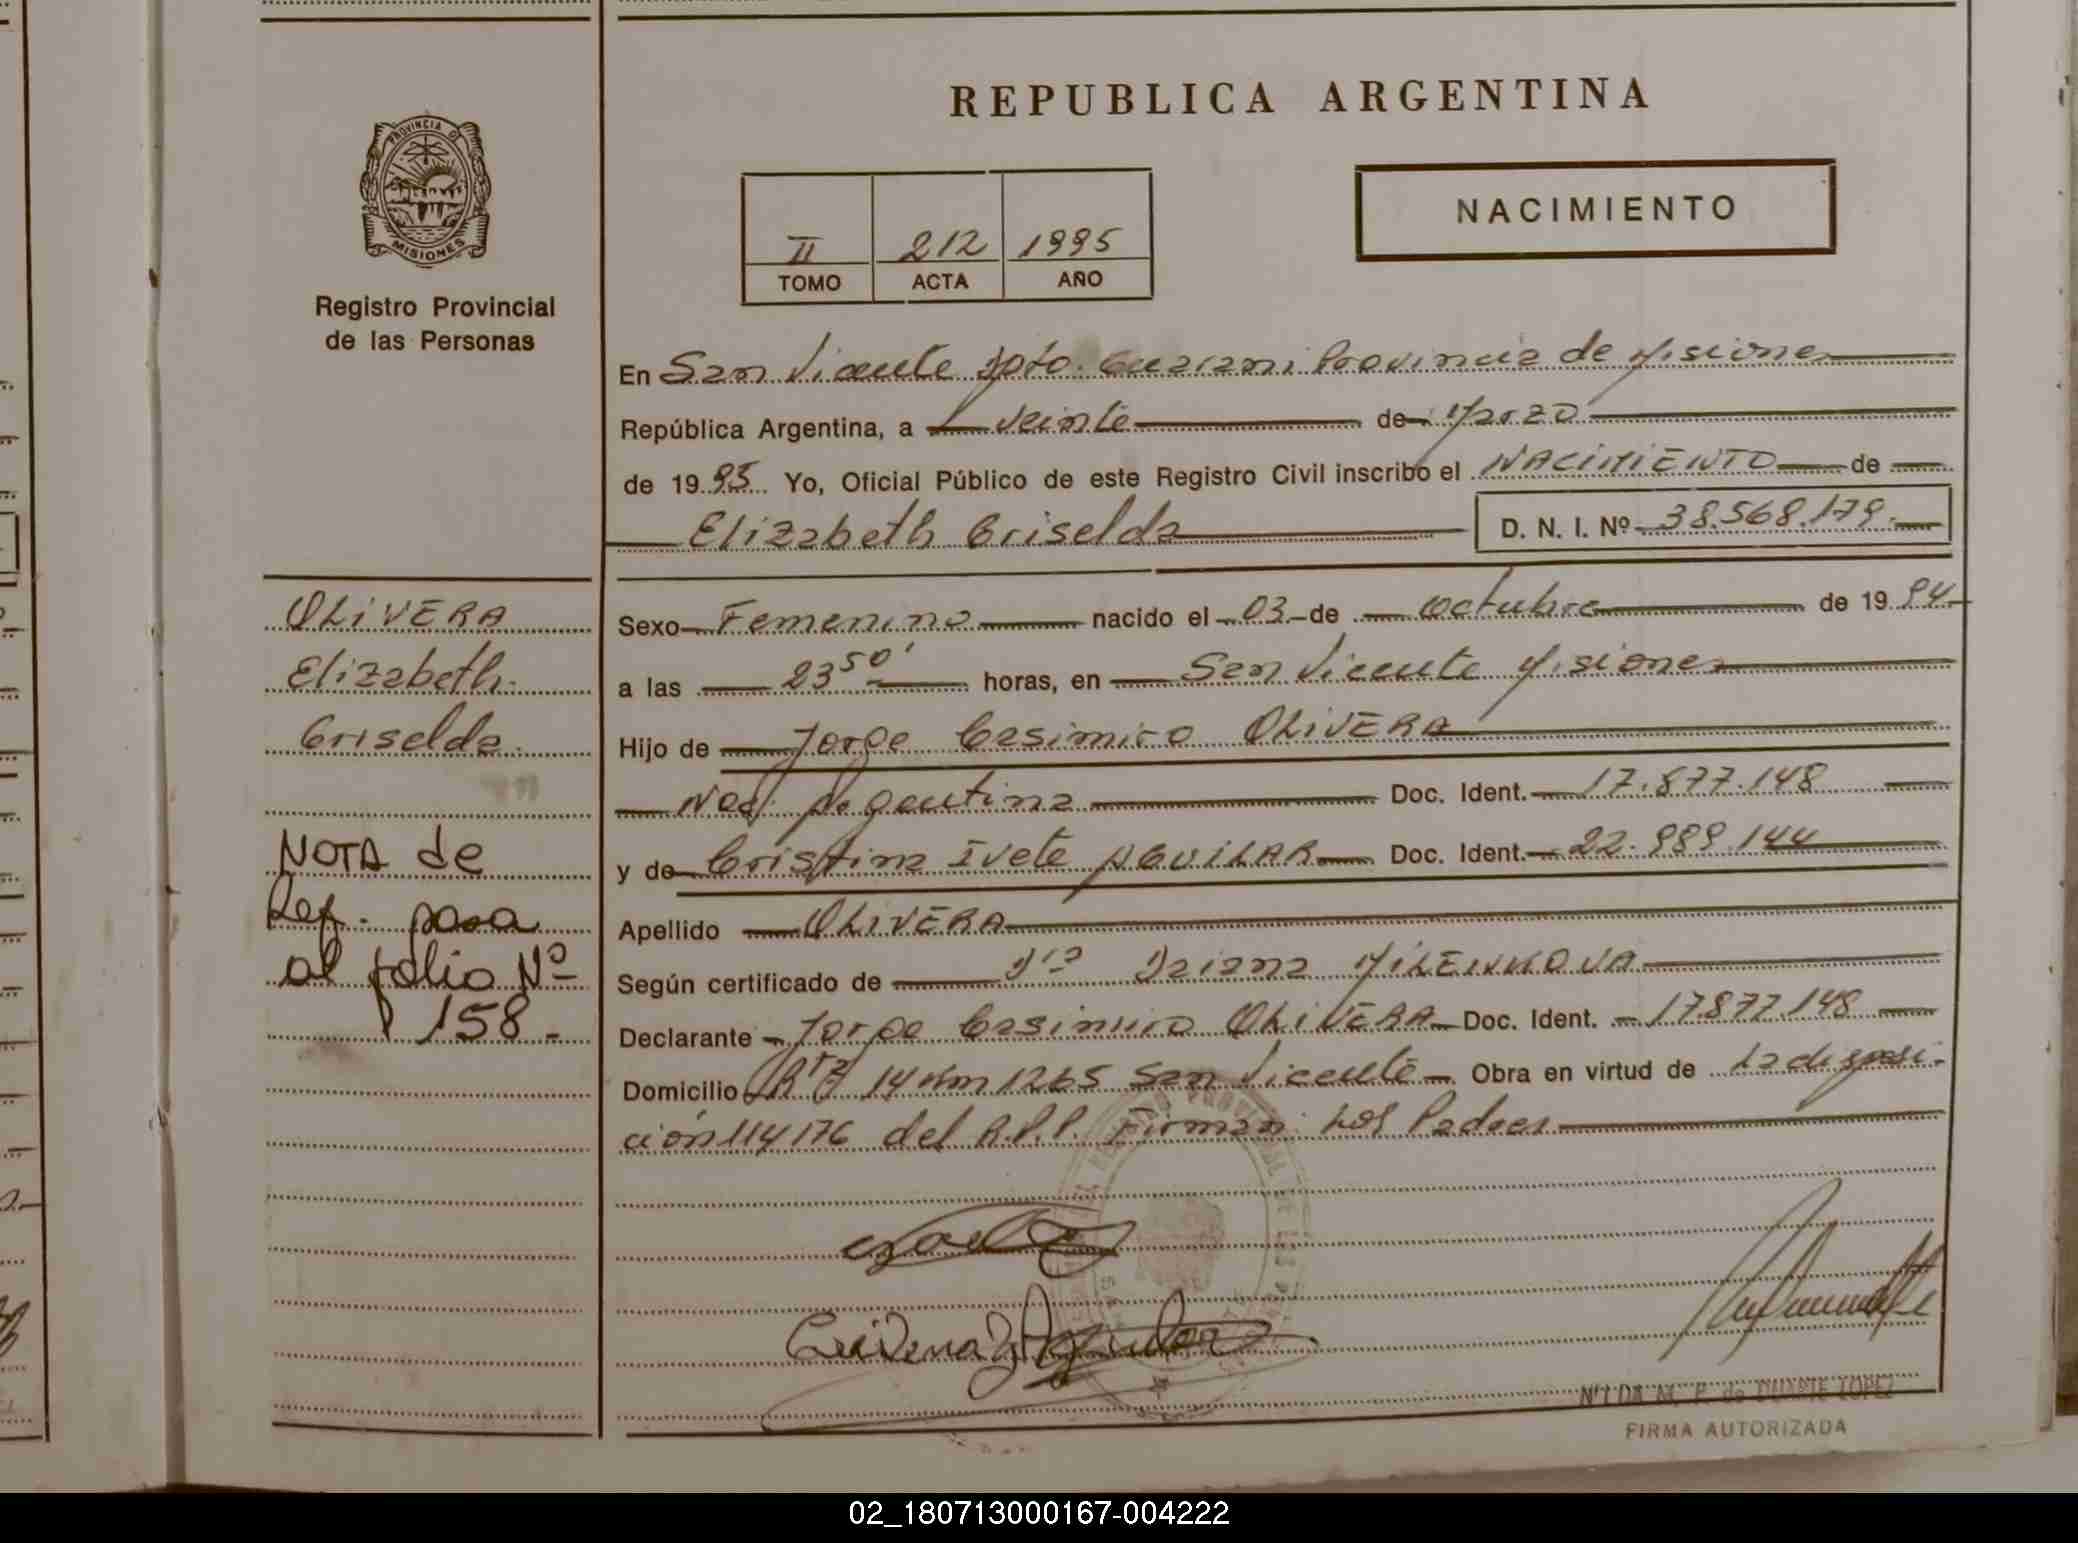 REPUBLICA ARGENTINA
PROVINCIA DE
MISIONES
Registro Provincial
de las Personas
II 212 1995
TOMO ACTA AÑO
NACIMIENTO
En San Vicente Dpto. Guarani Provincia de Misiones
República Argentina, a veinte de Marzo
de 1995 Yo, Oficial Público de este Registro Civil inscribo el NACIMIENTO de
Elizabeth Griselda D. N. I. Nº 38.568.179.
OLIVERA
Elizabeth
Griselda
NOTA de
Ref. pasa
al folio Nº
158.
Sexo Femenino nacido el 03 de octubre de 1994
a las 23 50' horas, en San Vicente Misiones
Hijo de Jorge Casimiro OLIVERA
Nac. Argentina Doc. Ident. 17.877.148
y de Cristina Ivete AGUILAR Doc. Ident. 22.989.144
Apellido OLIVERA
Según certificado de Dra Daiana
Declarante Jorge Casimiro OLIVERA Doc. Ident. 17.877.148
Domicilio Rta 14 Km 1265 San Vicente Obra en virtud de La disposi-
ción 114/76 del R.P.P. Firman Los Padres
de DUARTE LOPEZ
FIRMA AUTORIZADA
02_180713000167-004222